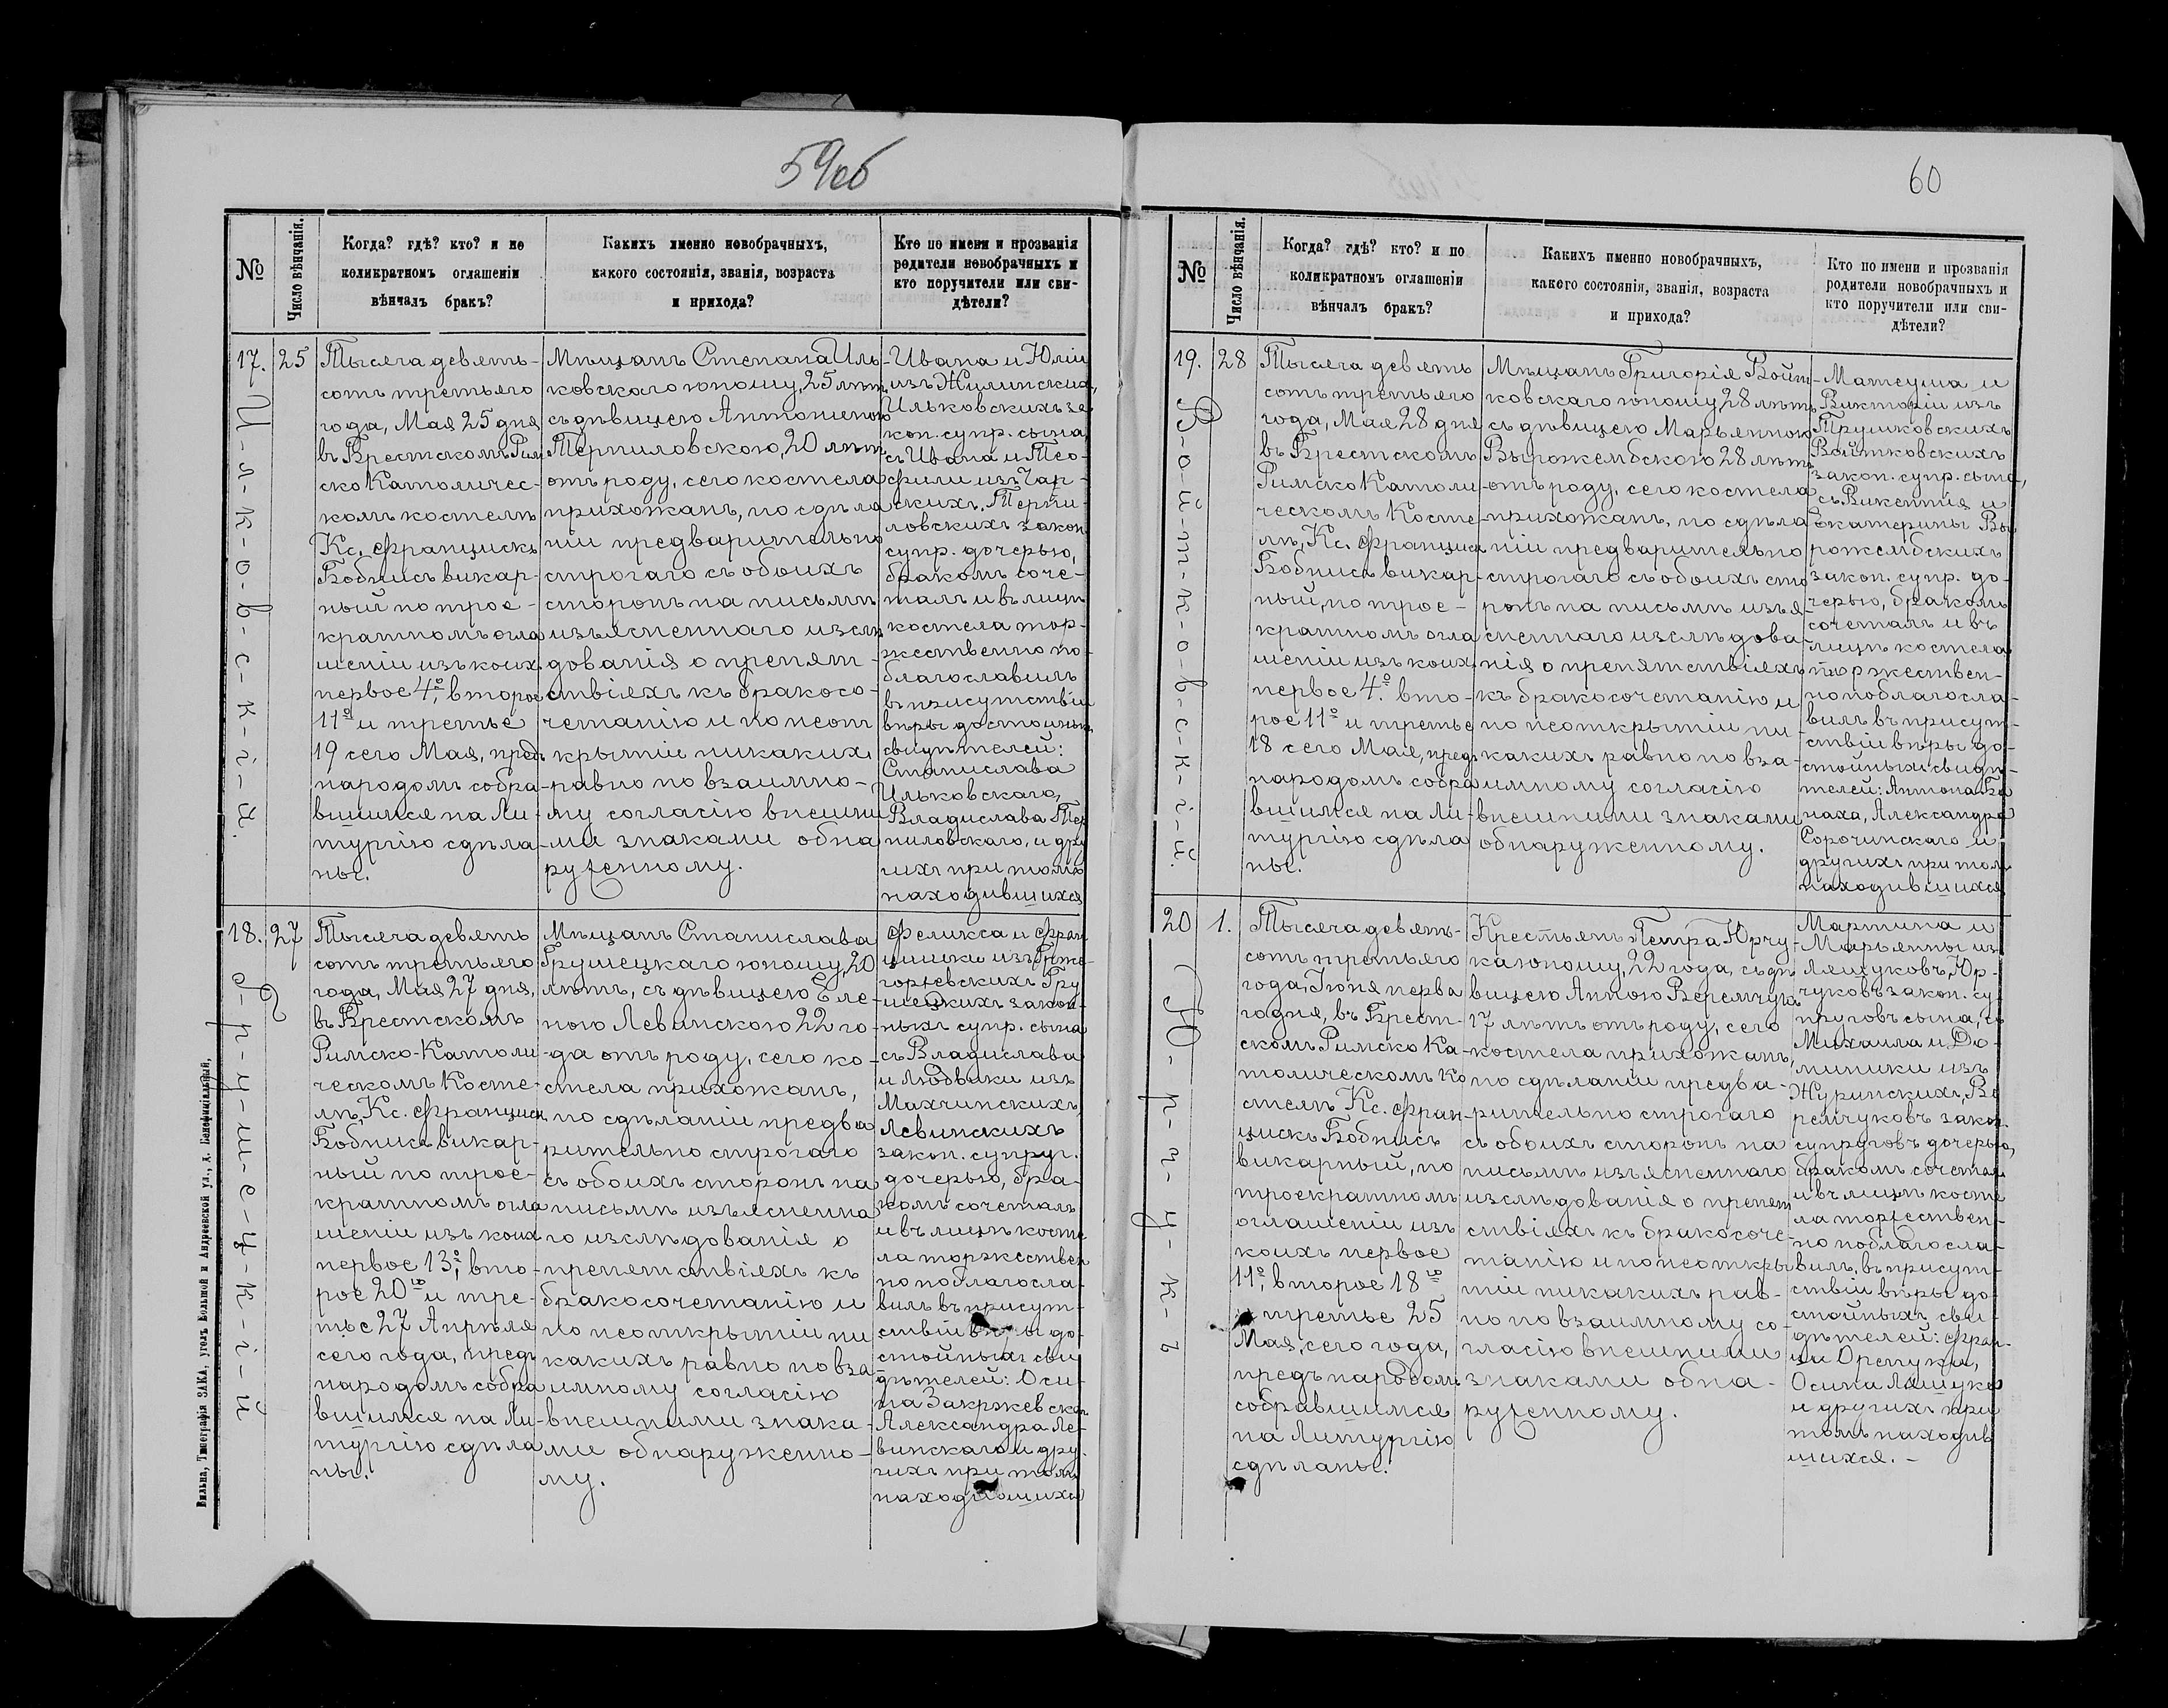 59об
№
Число вѣнчанія.
Когда? гдѣ? кто? и по
коликратномъ оглашеніи
вѣнчалъ бракъ?
Какихъ именно новобрачныхъ,
какого состоянія, званія, возраста
и прихода?
Кто по имени и прозванія
родители новобрачныхъ и
кто поручители или сви-
дѣтели?
17.
25
И-л-к-о-в-с-к-і-й.
Тысяча девять-
сотъ третьяго
года, Мая 25 дня
въ Брестскомъ Рим
ско Католичес-
комъ костелѣ
Кс. Францискъ
Бобнисъ викар-
ный по трое-
кратномъ огла
шеніи изъ коих
первое 4º, второе
11º и третье
19 сего Мая, предъ
народомъ собра-
вшимся на Ли-
тургію сдѣла
ны.
Мѣщанъ Степана Иль-
ковского юношу, 25 лѣтъ
съ дѣвицею Антониною
Терпиловскою, 20 лѣтъ
отъ роду, сего костела
прихожанъ, по сдѣла
ніи предварительно
строгаго съ обоихъ
сторонъ на письмѣ
изъясненнаго изслѣ
дованія о препят-
ствіяхъ къ бракосо-
четанію и по неот
крытіи никакихъ
равно по взаимно-
му согласію внешни
ми знаками обна
руженному.
Ивана и Юліи
изъ Жилинскихъ,
Ильковскихъ за
кон. супр. сына,
съ Ивана и Тео-
фили изъ Чар-
скихъ, Терпи-
ловскихъ закон
супр. дочерью,
бракомъ соче-
талъ и въ лицѣ
костела тор-
жественно по-
благославилъ
въ присутствіи
вѣры достойныхъ
свидѣтелей:
Станислава
Ильковскаго,
Владислава Тер
пиловскаго, и дру
гихъ при томъ
находившихся
18.
27
Г-р-у-ш-е-ц-к-і-й
Тысяча девять
сотъ третьяго
года, Мая 27 дня,
въ Брестскомъ
Римско-Католи
ческомъ Косте-
лѣ, Кс. Францискъ
Бобнисъ викар-
ный по трое-
кратномъ огла
шеніи изъ коихъ
первое 13º, вто-
рое 20го и тре-
тье 27 Апрѣля
сего года, предъ
народомъ собра
вшимся на Ли-
тургію сдѣла
ны.
Мѣщанъ Станислава
Грушецкаго юношу, 20
лѣтъ, съ дѣвицею Еле-
ною Левинскою 22 го-
да отъ роду, сего ко-
стела прихожанъ,
по сдѣланіи предва
рительно строгаго
съ обоихъ сторонъ на
письмѣ изъясненна
го изслѣдованія о
препятствіяхъ къ
бракосочетанію и
по неоткрытіи ни
какихъ равно по вза
имному согласію
внешними знака-
ми обнаруженно-
му.
Феликса и Фран
цишки изъ Грже-
горжевскихъ Гру
шецкихъ закон-
ныхъ супр. сына
съ Владислава
и Людвики изъ
Махчинскихъ,
Левинскихъ
закон. супруг.
дочерью, бра-
комъ сочеталъ
и въ лицѣ косте
ла торжествен
но поблагосла-
вилъ въ присут-
ствіи вѣры до-
стойныхъ сви
дѣтелей: Оси-
па Закржевска
Александра Ле-
винскаго и дру-
гихъ при томъ
находившихся
Вильна, Типографія ЗАКА, уголъ Большой и Андреевской ул., д. Бенефиціальный.
60
№
Число вѣнчанія.
Когда? гдѣ? кто? и по
коликратномъ оглашеніи
вѣнчалъ бракъ?
Какихъ именно новобрачныхъ,
какого состоянія, званія, возраста
и прихода?
Кто по имени и прозванія
родители новобрачныхъ и
кто поручители или сви-
дѣтели?
19.
28
В-о-й-т-к-о-в-с-к-і-й.
Тысяча девять
сотъ третьяго
года, Мая 28 дня
въ Брестскомъ
Римско Католи
ческомъ Косте-
лѣ, Кс. Францискъ
Бобнисъ викар-
ный, по трое-
кратномъ огла
шеніи изъ коихъ
первое 4.º вто-
рое 11º и третье
18 сего Мая, предъ
народомъ собра
вшимся на Ли-
тургію сдѣла
ны.
Мѣщанъ Григорія Войт-
ковскаго юношу 28 лѣтъ
съ дѣвицею Марьянною
Вырожембскою 28 лѣтъ
отъ роду, сего костела
прихожанъ, по сдѣла
ніи предварительно
строгаго съ обоихъ сто
ронъ на письмѣ изъя-
сненнаго изслѣдова-
нія о препятствіяхъ
къ бракосочетанію и
по неоткрытіи ни-
какихъ равно по вза-
имному согласію
внешними знаками
обнаруженному.
Матеуша и
Викторіи изъ
Трушковскихъ
Войтковскихъ
закон. супр. сына,
съ Викентія и
Екатерины Вы
рожембскихъ
закон. супр. до-
черью, бракомъ
сочеталъ и въ
лицѣ костела
торжествен-
но поблагосла-
вилъ въ присут-
ствіи вѣры до-
стойныхъ свидѣ-
телей: Антона Га
наха, Александра
Сорочинскаго и
другихъ при томъ
находившихся
20
1.
Ю-р-ч-у-к-ъ
Тысяча девять-
сотъ третьяго
года, Іюня перва
го дня, въ Брест-
скомъ Римско Ка-
толическомъ Ко
стелѣ Кс. Фран-
цискъ Бобнисъ
викарный, по
троекратномъ
оглашеніи изъ
коихъ первое
11º, второе 18го
и третье 25
Мая, сего года,
предъ народомъ
собравшимся
на Литургію
сдѣланы.
Крестьянъ Петра Юрчу-
ка юношу, 22 года, съ дѣ
вицею Анною Веремчукъ
17 лѣтъ отъ роду, сего
костела прихожанъ,
по сдѣланіи предва-
рительно строгаго
съ обоихъ сторонъ на
письмѣ изъясненнаго
изслѣдованія о препят
ствіяхъ къ бракосоче-
танію и по неоткры
тіи никакихъ рав-
но по взаимному со-
гласію внешними
знаками обна-
руженному.
Мартина и
Марьянны из
Ляшуковъ, Юр-
чуковъ закон. су-
пруговъ сына, съ
Михаила и До-
миники изъ
Журинскихъ, Ве
ремчуковъ закон.
супруговъ дочерью,
бракомъ сочеталъ
и въ лицѣ косте
ла торжествен-
но поблагосла-
вилъ, въ присут-
ствіи вѣры до-
стойныхъ сви-
дѣтелей: Фран-
ца Оремуки,
Осипа Ляшука
и другихъ при
томъ находив
шихся. -